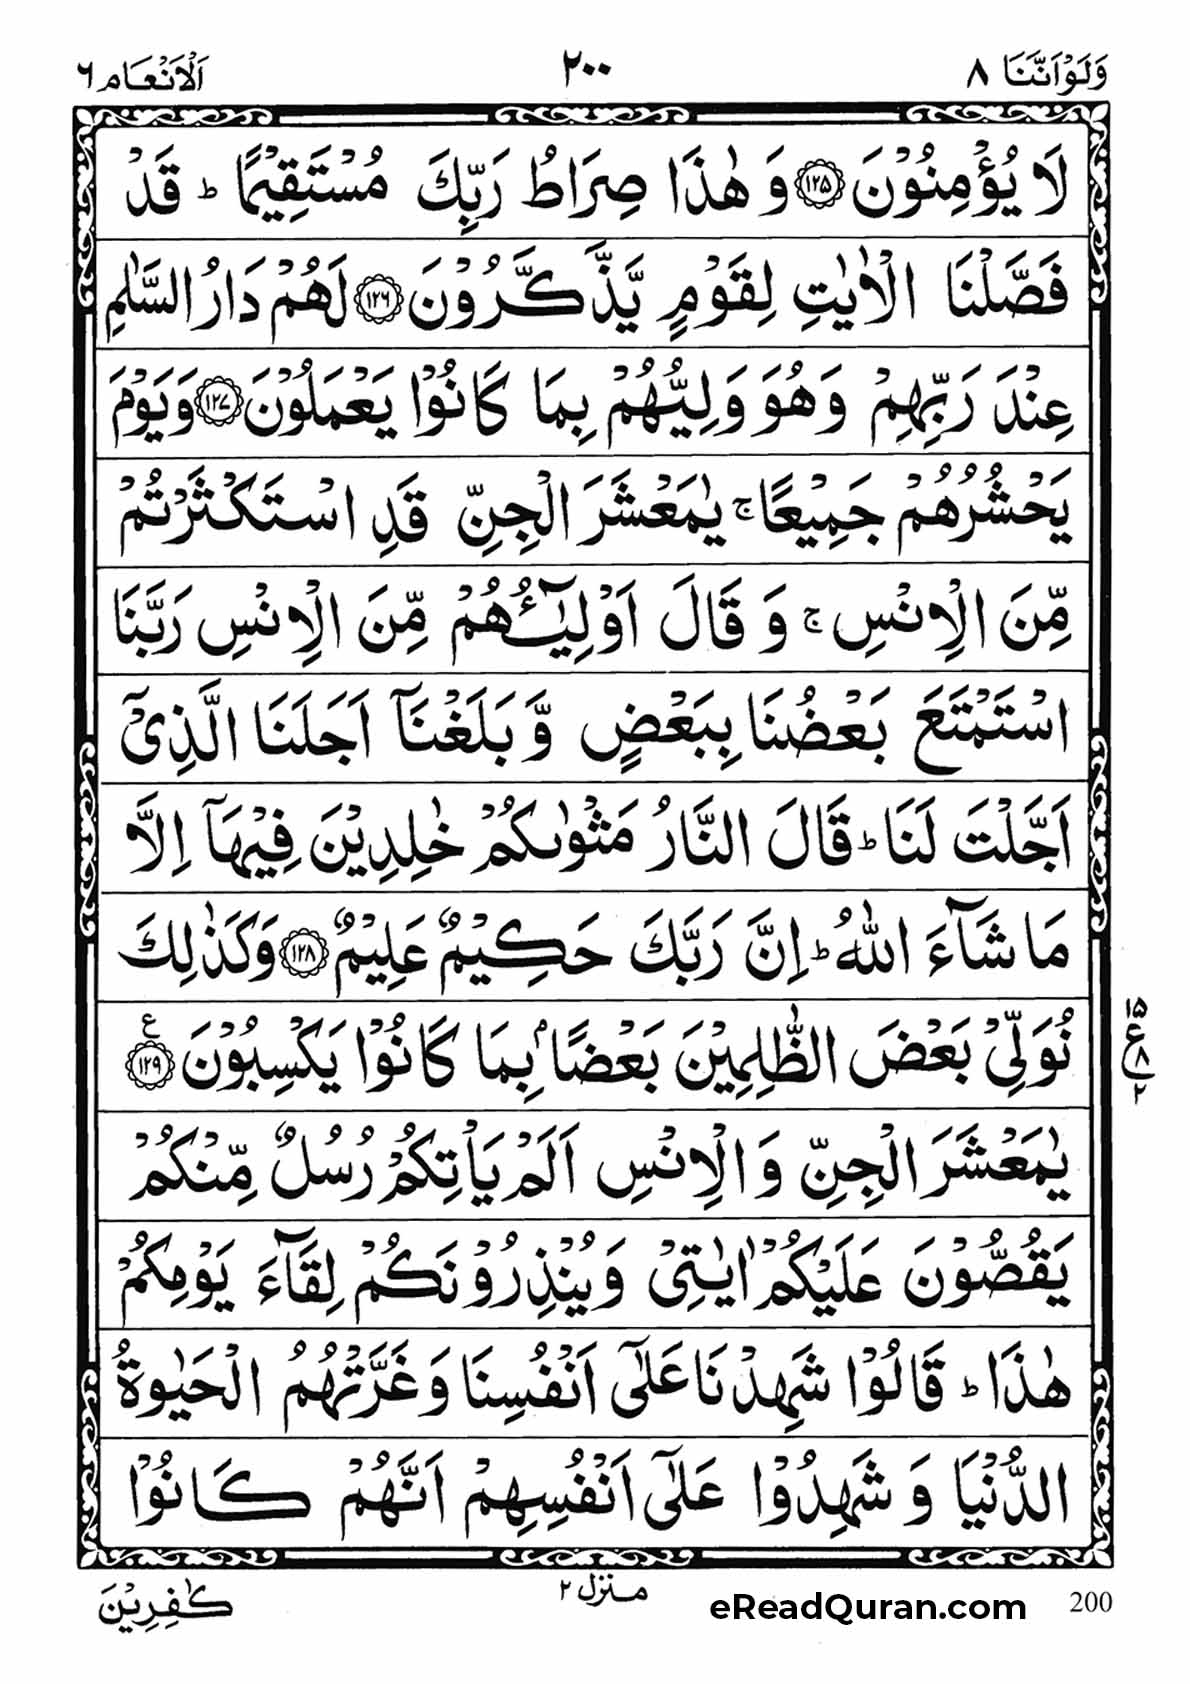 وَلَوْاَنَّنَا ٨
٢٠٠
اَلْاَنْعَام ٦
لَا يُؤْمِنُوْنَ ١٢٥ وَ هٰذَا صِرَاطُ رَبِّكَ مُسْتَقِيْمًا ؕ قَدْ
فَصَّلْنَا الْاٰيٰتِ لِقَوْمٍ يَّذَّكَّرُوْنَ ١٢٦ لَهُمْ دَارُ السَّلٰمِ
عِنْدَ رَبِّهِمْ وَهُوَ وَلِيُّهُمْ بِمَا كَانُوْا يَعْمَلُوْنَ ١٢٧ وَيَوْمَ
يَحْشُرُهُمْ جَمِيْعًا ۚ يٰمَعْشَرَ الْجِنِّ قَدِ اسْتَكْثَرْتُمْ
مِّنَ الْاِنْسِ ۚ وَ قَالَ اَوْلِيٰٓـؤُهُمْ مِّنَ الْاِنْسِ رَبَّنَا
اسْتَمْتَعَ بَعْضُنَا بِبَعْضٍ وَّ بَلَغْنَاۤ اَجَلَنَا الَّذِيْۤ
اَجَّلْتَ لَنَا ؕ قَالَ النَّارُ مَثْوٰىكُمْ خٰلِدِيْنَ فِيْهَاۤ اِلَّا
مَا شَآءَ اللّٰهُ ؕ اِنَّ رَبَّكَ حَكِيْمٌ عَلِيْمٌ ١٢٨ وَكَذٰلِكَ
نُوَلِّيْ بَعْضَ الظّٰلِمِيْنَ بَعْضًاۢ بِمَا كَانُوْا يَكْسِبُوْنَ ١٢٩ ع
١٥
ع ٨
٢
يٰمَعْشَرَ الْجِنِّ وَ الْاِنْسِ اَلَمْ يَاْتِكُمْ رُسُلٌ مِّنْكُمْ
يَقُصُّوْنَ عَلَيْكُمْ اٰيٰتِيْ وَ يُنْذِرُوْنَكُمْ لِقَآءَ يَوْمِكُمْ
هٰذَا ؕ قَالُوْا شَهِدْنَا عَلٰٓى اَنْفُسِنَا وَ غَرَّتْهُمُ الْحَيٰوةُ
الدُّنْيَا وَ شَهِدُوْا عَلٰٓى اَنْفُسِهِمْ اَنَّهُمْ كَانُوْا
كٰفِرِيْنَ
منزل ٢
eReadQuran.com
200